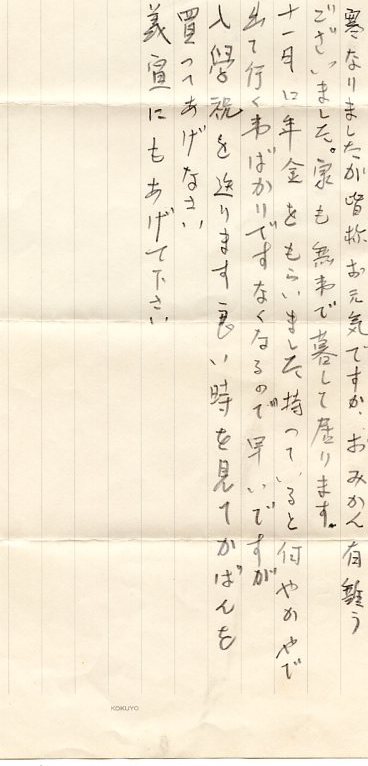 寒なりましたが皆様お元気ですか、おみかん有難う
ございました。家も無事で暮して居ります。
十一月に年金をもらいました持っていると何やかやで
出て行く事ばかりですなくなるので早いですが
入學祝を送ります良い時を見てかばんを
買ってあげなさい
義宣にもあげて下さい
KOKUYO